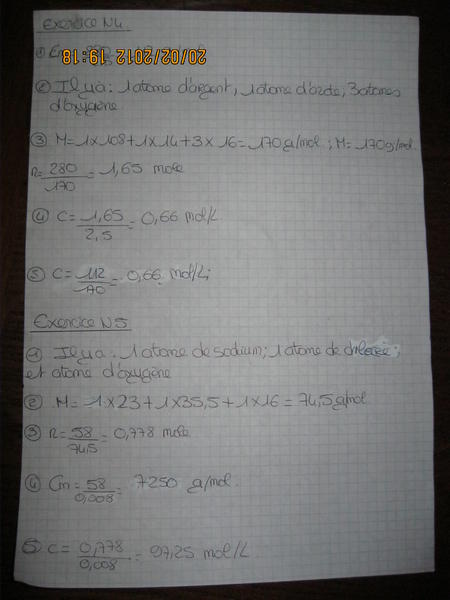 Exercice N4
① Cm= 280
20/02/2012 19:18
② Il y a : 1 atome d'argent, 1 atome d'azote, 3 atomes
d'oxygène.
③ M= 1×108+1×14+3×16=170g/mol ; M=170g/mol.
n= 280/170 = 1,65 mole
④ C= 1,65/2,5 = 0,66 mol/L.
⑤ C= 112/170 = 0,66 mol/L;
Exercice N5
① Il y a : 1 atome de sodium; 1 atome de chlore;
et atome d'oxygène
② M= 1×23+1×35,5+1×16=74,5g/mol
③ n= 58/74,5 = 0,778 mole
④ Cm= 58/0,008 = 7250 g/mol.
⑤ C= 0,778/0,008 = 97,25 mol/L.